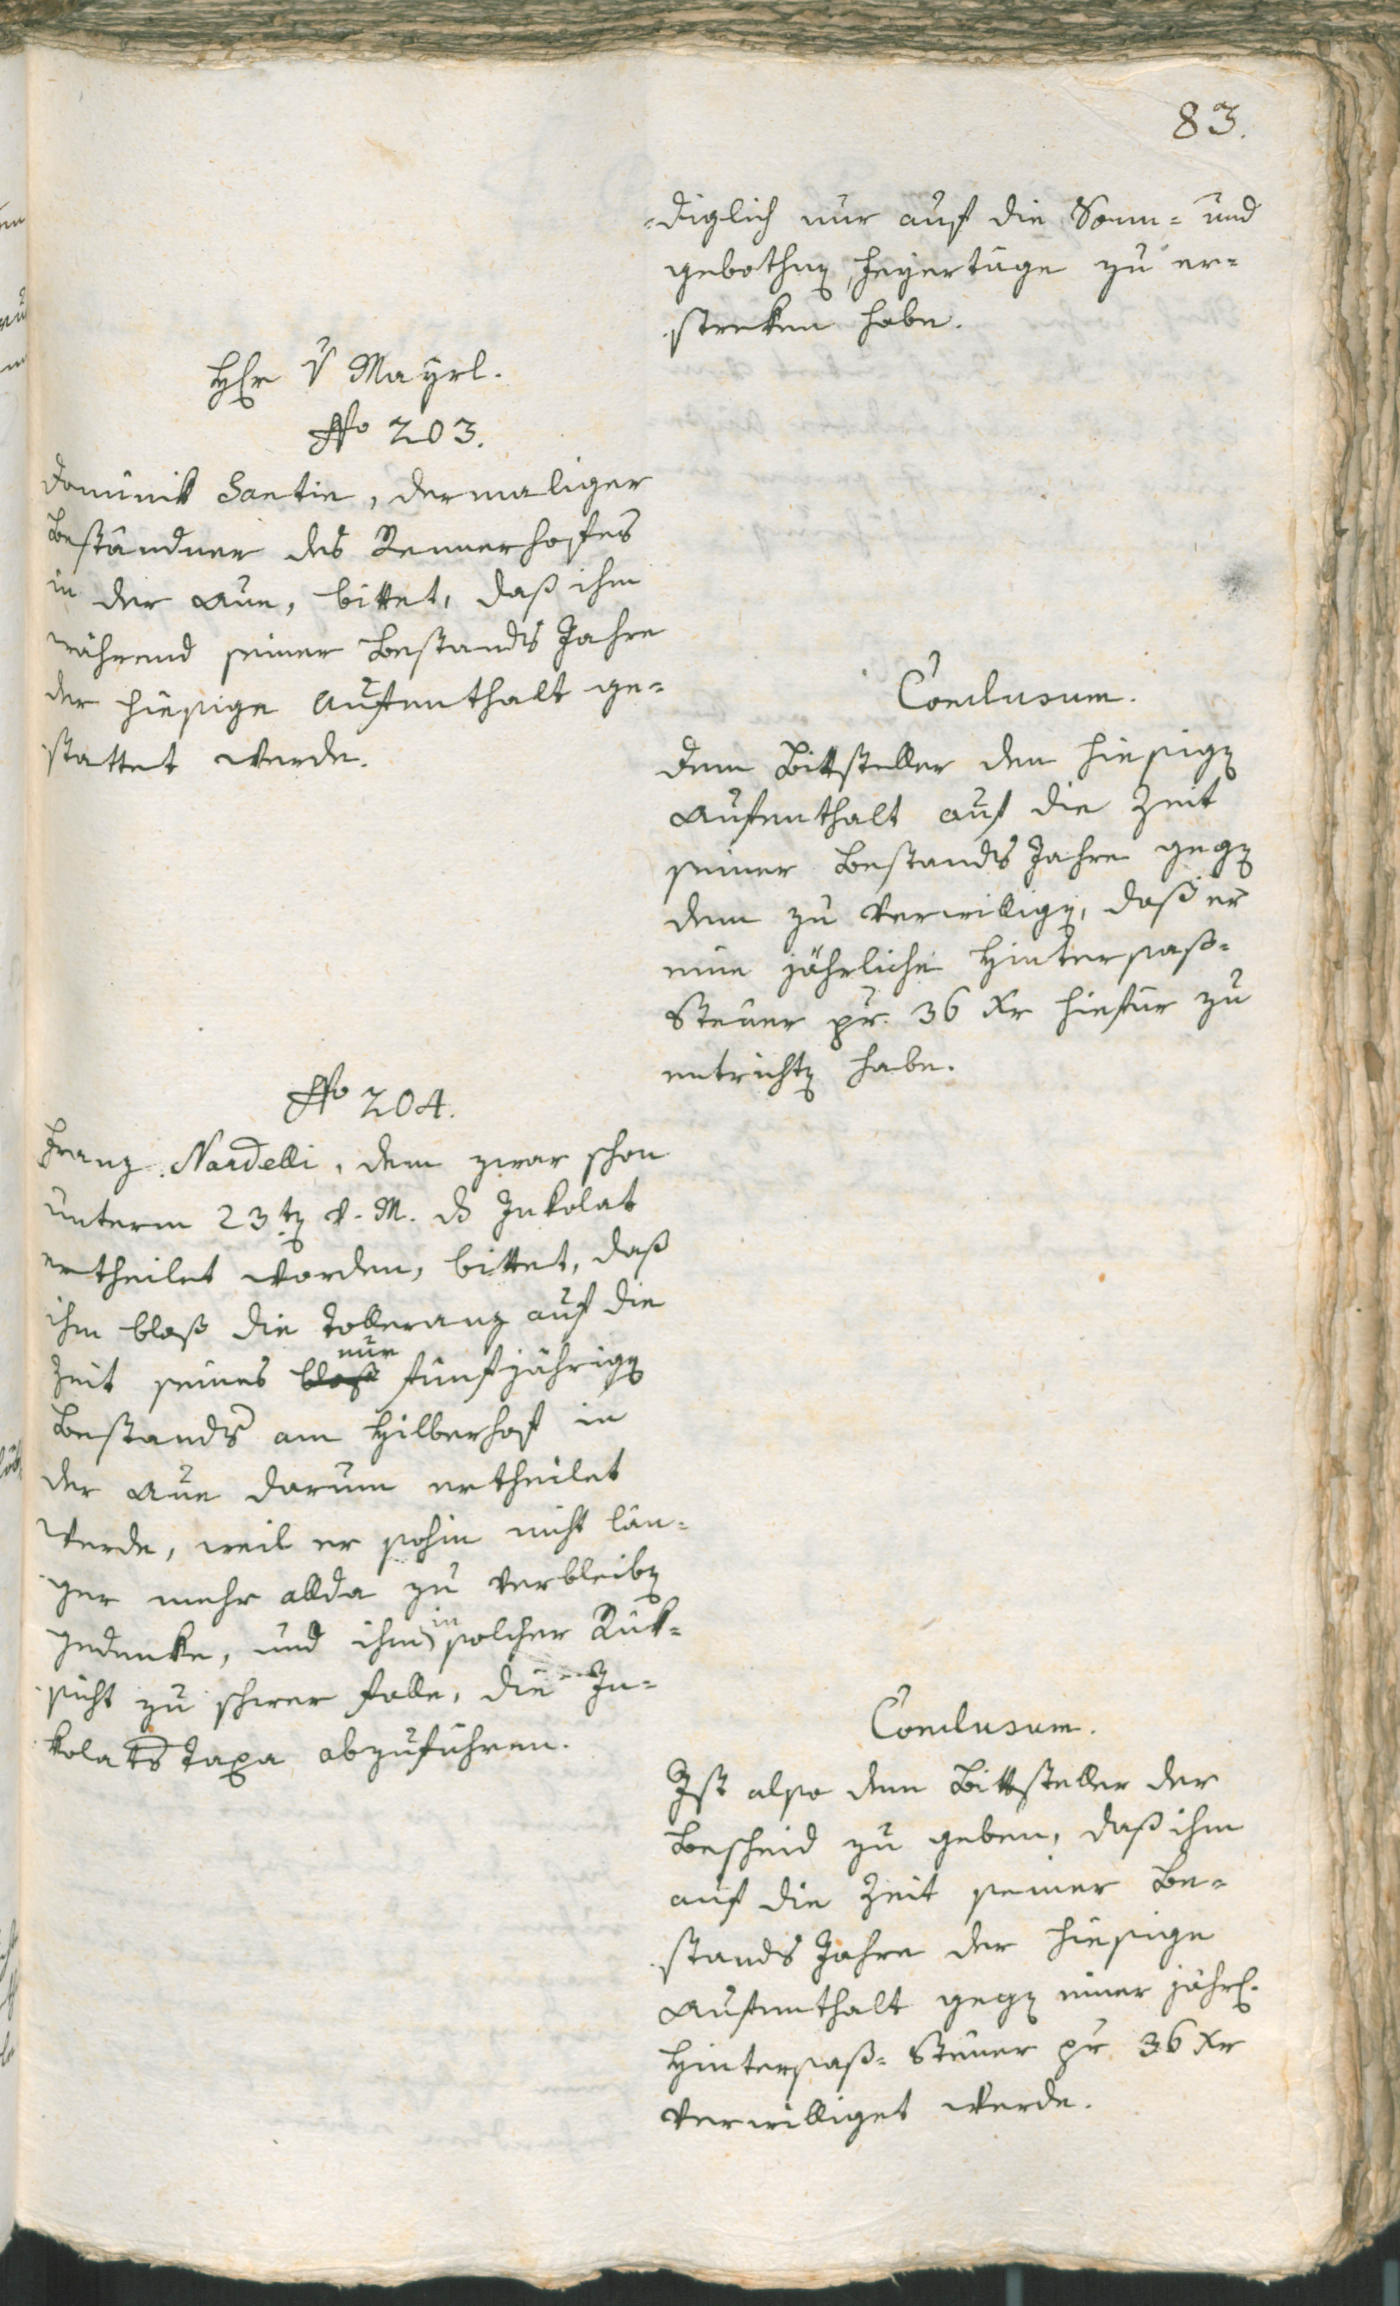 83.
diglich nur auf die Sonn- und
gebothen Feyertäge zu er-
streken habe.
Hr v Mayrl.
No 203.
Dominik Santin, dermaliger
Beständner des Rennerhofes
in der Aue, bittet, daß ihm
während seiner Bestands Jahre
der hiesige Aufenthalt ge-
stattet werde.
Conclusum.
Dem Bittsteller den hiesigen
Aufenthalt auf die Zeit
seiner Bestands Jahre gegen
dem zu verwilligen, daß er
eine jährliche Hintersaß-
Steuer pr. 36 Kr hiefür zu
entrichten habe.
No 204.
Franz Nardelli, dem zwar schon
unterm 23ten v. M. das Inkolat
ertheilet worden, bittet, daß
ihm bloß die Tolleranz auf die
Zeit seines bloß nur fünfjährigen
Bestands am Hilberhof in
der Aue darum ertheilet
werde, weil er sohin nicht län-
ger mehr allda zu verbleiben
gedenke, und ihm in solcher Rük-
sicht zu schwer falle, die In-
kolats Taxa abzuführen.
Conclusum.
Ist also dem Bittsteller der
Bescheid zu geben, daß ihm
auf die Zeit seiner Be-
stands Jahre der hiesige
Aufenthalt gegen einer jährl.
Hintersaß-Steuer pr 36 Kr
verwilliget werde.